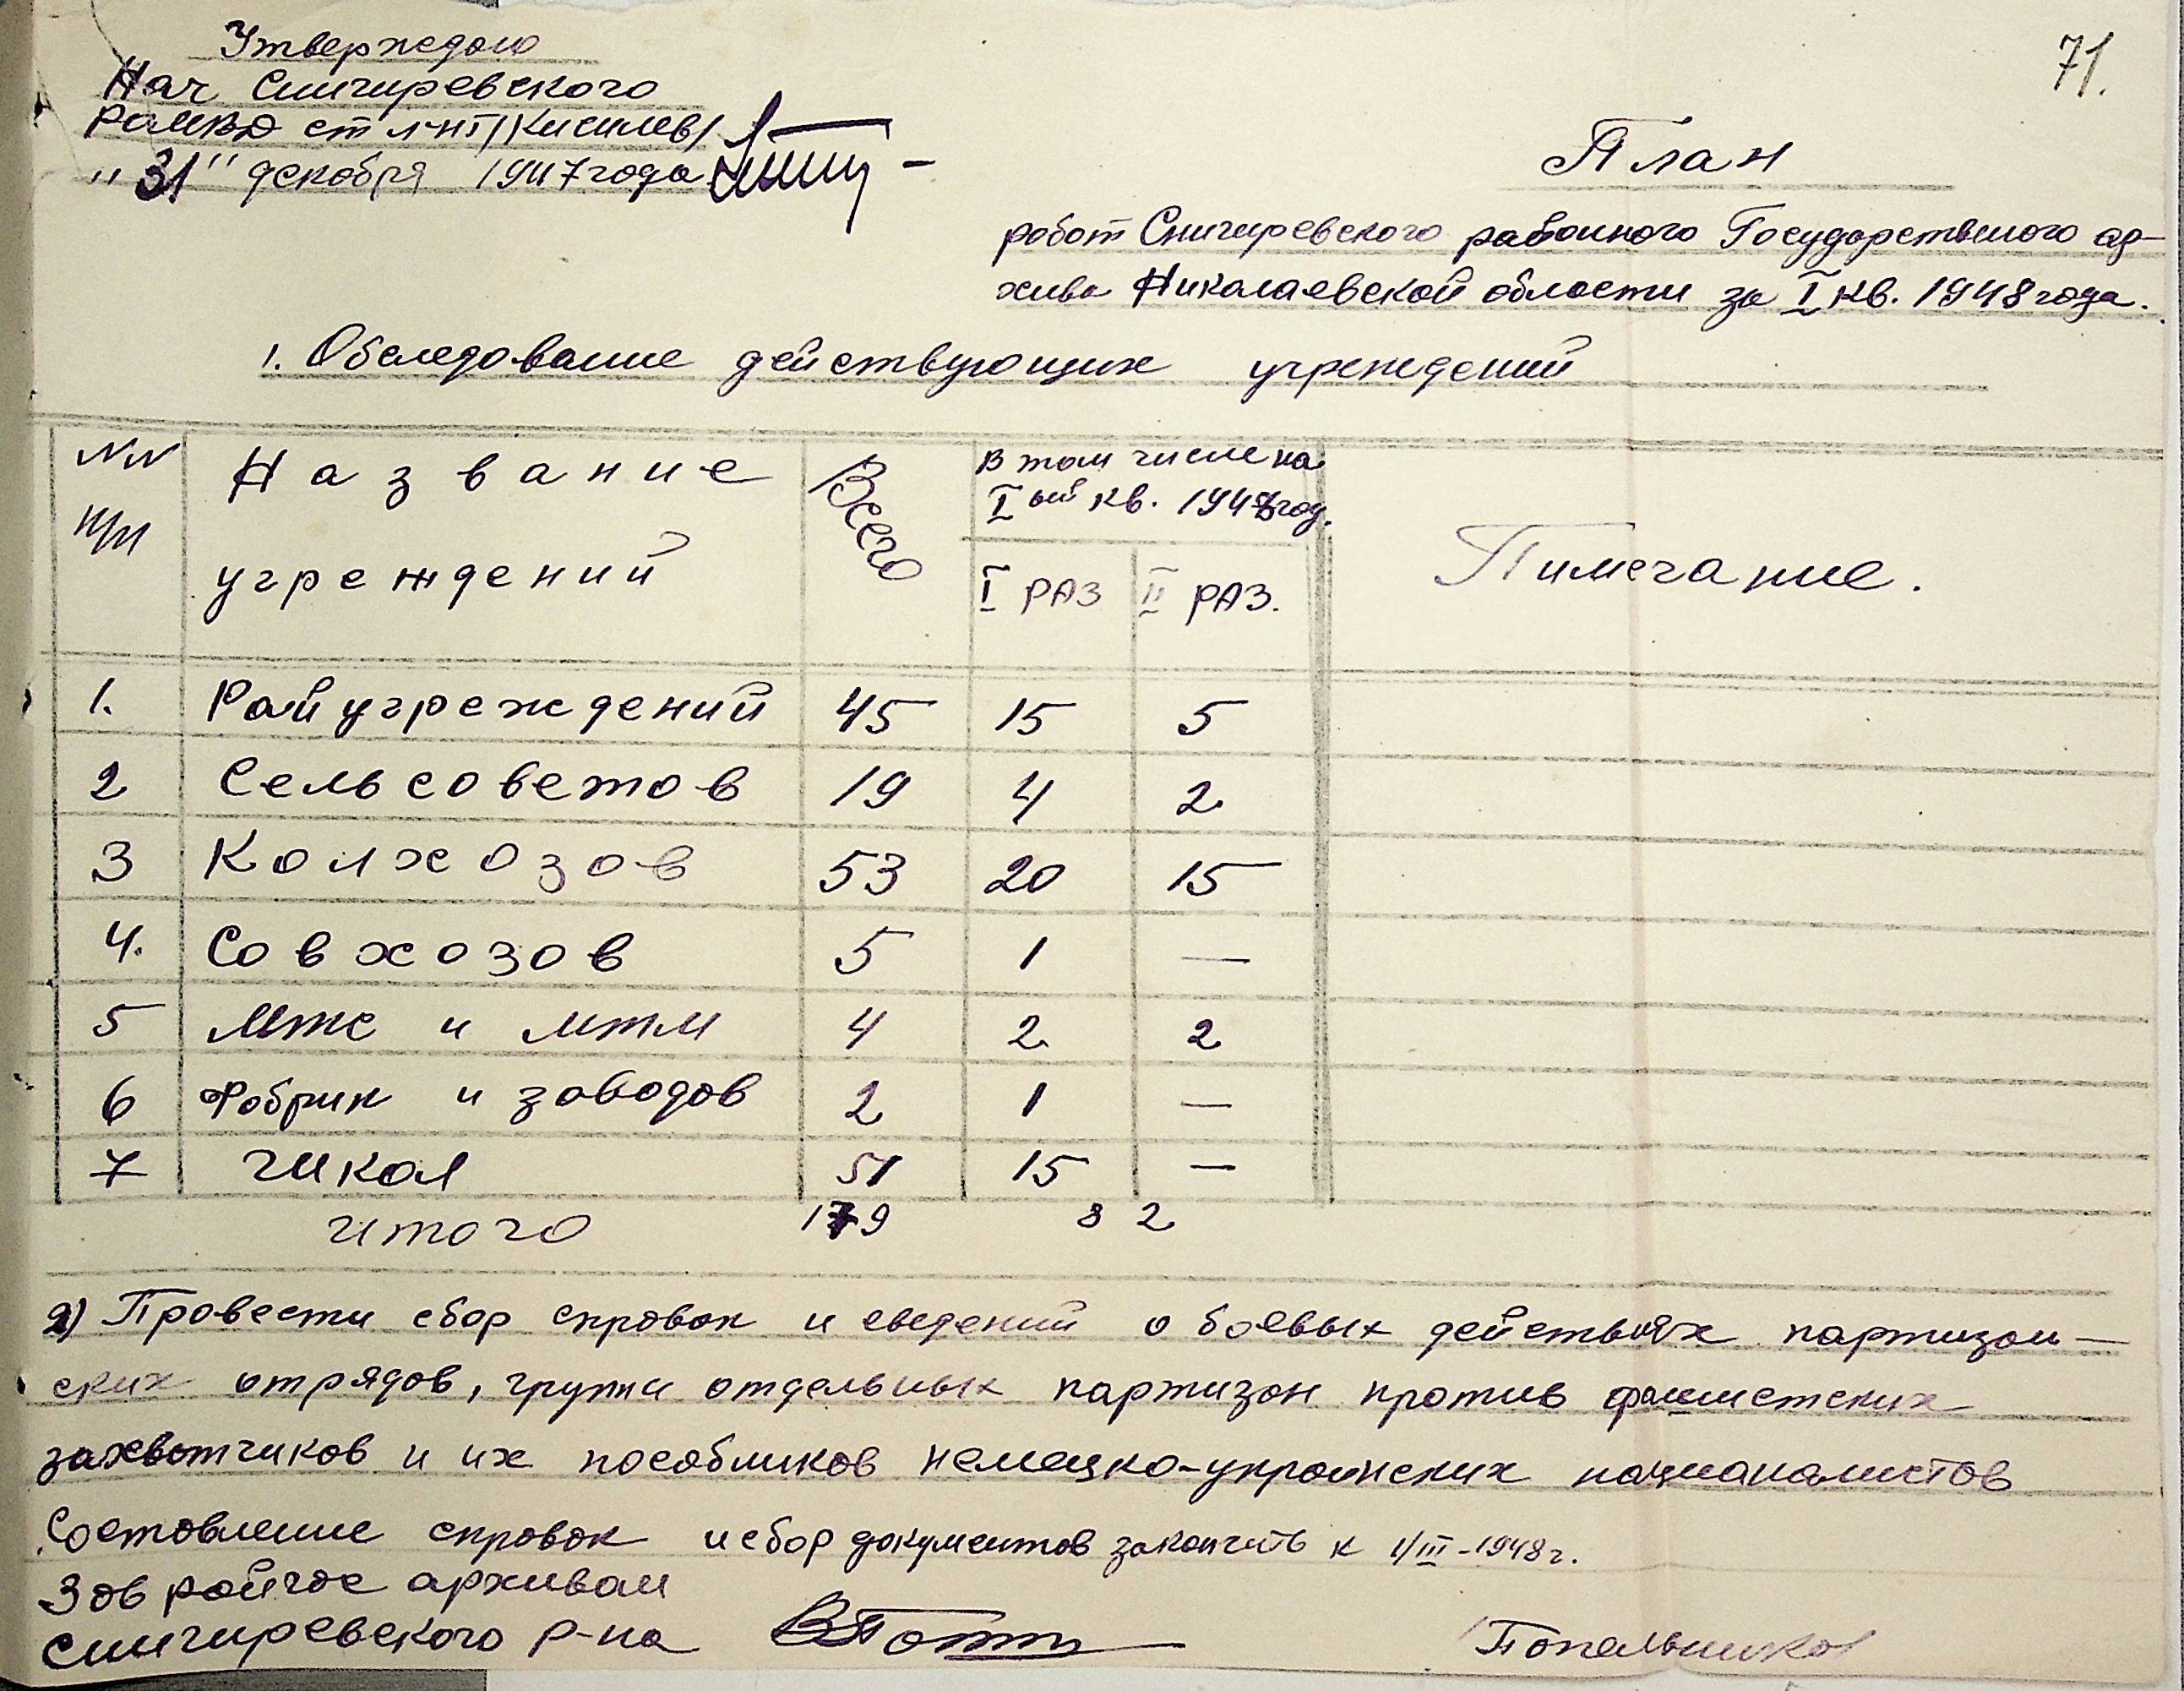 Утверждаю
Нач Снигиревского
РОМВД ст л-нт /Киселев/
"31" декабря 1947 года
71.
План
работ Снигиревского районного Государственого ар-
хива Николаевской области за I кв. 1948 года.
1. Обследование действующих учреждений
NN п/п
Название учреждений
Всего
В том числе на I ый кв. 1948 год.
I РАЗ
II РАЗ.
Пимечание.
1. Райучреждений 45 15 5
2 Сельсоветов 19 4 2
3 Колхозов 53 20 15
4. Совхозов 5 1 —
5 Мтс и мтм 4 2 2
6 Фабрик и заводов 2 1 —
7 Школ 51 15 —
Итого 179 82
2) Провести сбор справок и сведений о боевых действиях партизан-
ских отрядов, групп отдельных партизан против фашистских
захватчиков и их пособников немецко-украинских националистов
Составление справок и сбор документов закончить к 1/III-1948 г.
Зав райгос архивом
Снигиревского р-на